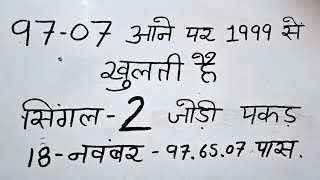 97-07 आने पर 1999 से
खुलती है
सिंगल-2 जोड़ी पकड़
18-नवंबर-97.65.07 पास.